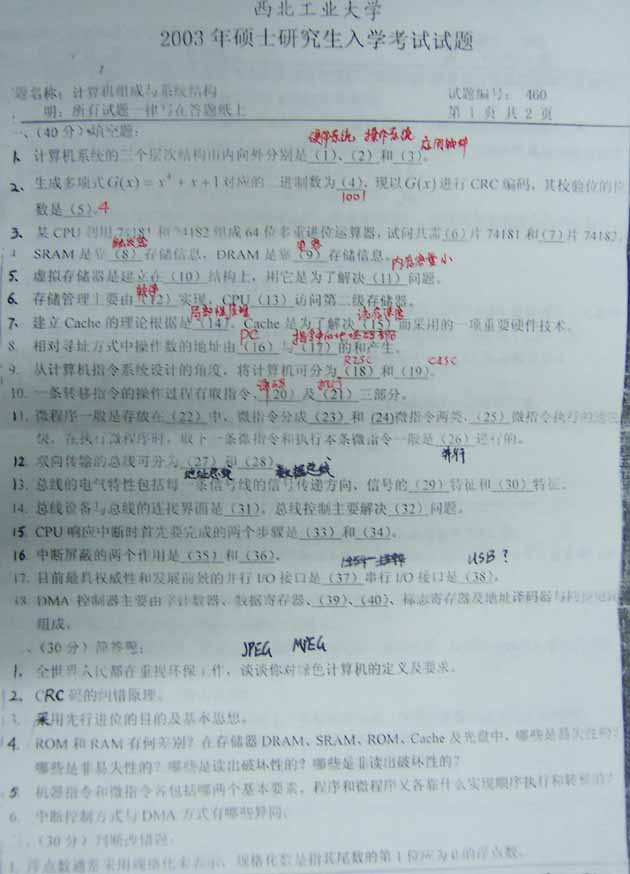 西北工业大学
2003年硕士研究生入学考试试题
题名称：计算机组成与系统结构 试题编号： 460
明：所有试题一律写在答题纸上 第 1 页 共 2 页
一、(40分)填空题：
硬件系统 操作系统 应用软件
1. 计算机系统的三个层次结构由内向外分别是(1)、(2)和(3)。
2. 生成多项式G(x)=x⁴+x+1对应的二进制数为(4)，现以G(x)进行CRC编码，其校验位的位
1001
数是(5)。4
3. 某CPU利用74181和74182组成64位多重进位运算器，试问共需(6)片74181和(7)片74182。
触发器 电容
4 SRAM是靠(8)存储信息，DRAM是靠(9)存储信息。
内存容量小
5. 虚拟存储器是建立在(10)结构上，用它是为了解决(11)问题。
软件
6. 存储管理主要由(12)实现，CPU(13)访问第二级存储器。
局部性原理
7. 建立Cache的理论根据是(14)。Cache是为了解决(15)而采用的一项重要硬件技术。
PC
8. 相对寻址方式中操作数的地址由(16)与(17)的和产生。
RISC CISC
9. 从计算机指令系统设计的角度，将计算机可分为(18)和(19)。
译码 执行
10. 一条转移指令的操作过程有取指令、(20)及(21)三部分。
11. 微程序一般是存放在(22)中，微指令分成(23)和(24)微指令两类，(25)微指令执行的速度
快，在执行微程序时，取下一条微指令和执行本条微指令一般是(26)进行的。
并行
12. 双向传输的总线可分为(27)和(28)。
地址总线 数据总线
13. 总线的电气特性包括每一条信号线的信号传递方向、信号的(29)特征和(30)特征。
14. 总线设备与总线的连接界面是(31)。总线控制主要解决(32)问题。
15. CPU响应中断时首先要完成的两个步骤是(33)和(34)。
16. 中断屏蔽的两个作用是(35)和(36)。
USB？
17. 目前最具权威性和发展前景的并行I/O接口是(37)串行I/O接口是(38)。
18. DMA控制器主要由字计数器、数据寄存器、(39)、(40)、标志寄存器及地址译码器与
组成。
二、(30分)简答题： JPEG MPEG
1. 全世界人民都在重视环保工作，谈谈你对绿色计算机的定义及要求。
2. CRC码的纠错原理。
3. 采用先行进位的目的及基本思想。
4. ROM和RAM有何差别？在存储器DRAM、SRAM、ROM、Cache及光盘中，哪些是易失性的？
哪些是非易失性的？哪些是读出破坏性的？哪些是非读出破坏性的？
5. 机器指令和微指令各包括哪两个基本要素，程序和微程序又各靠什么实现顺序执行和转移的？
6. 中断控制方式与DMA方式有哪些异同。
三、(30分)判断改错题。
1. 浮点数通常采用规格化来表示，规格化数是指其尾数的第1位应为0的浮点数。